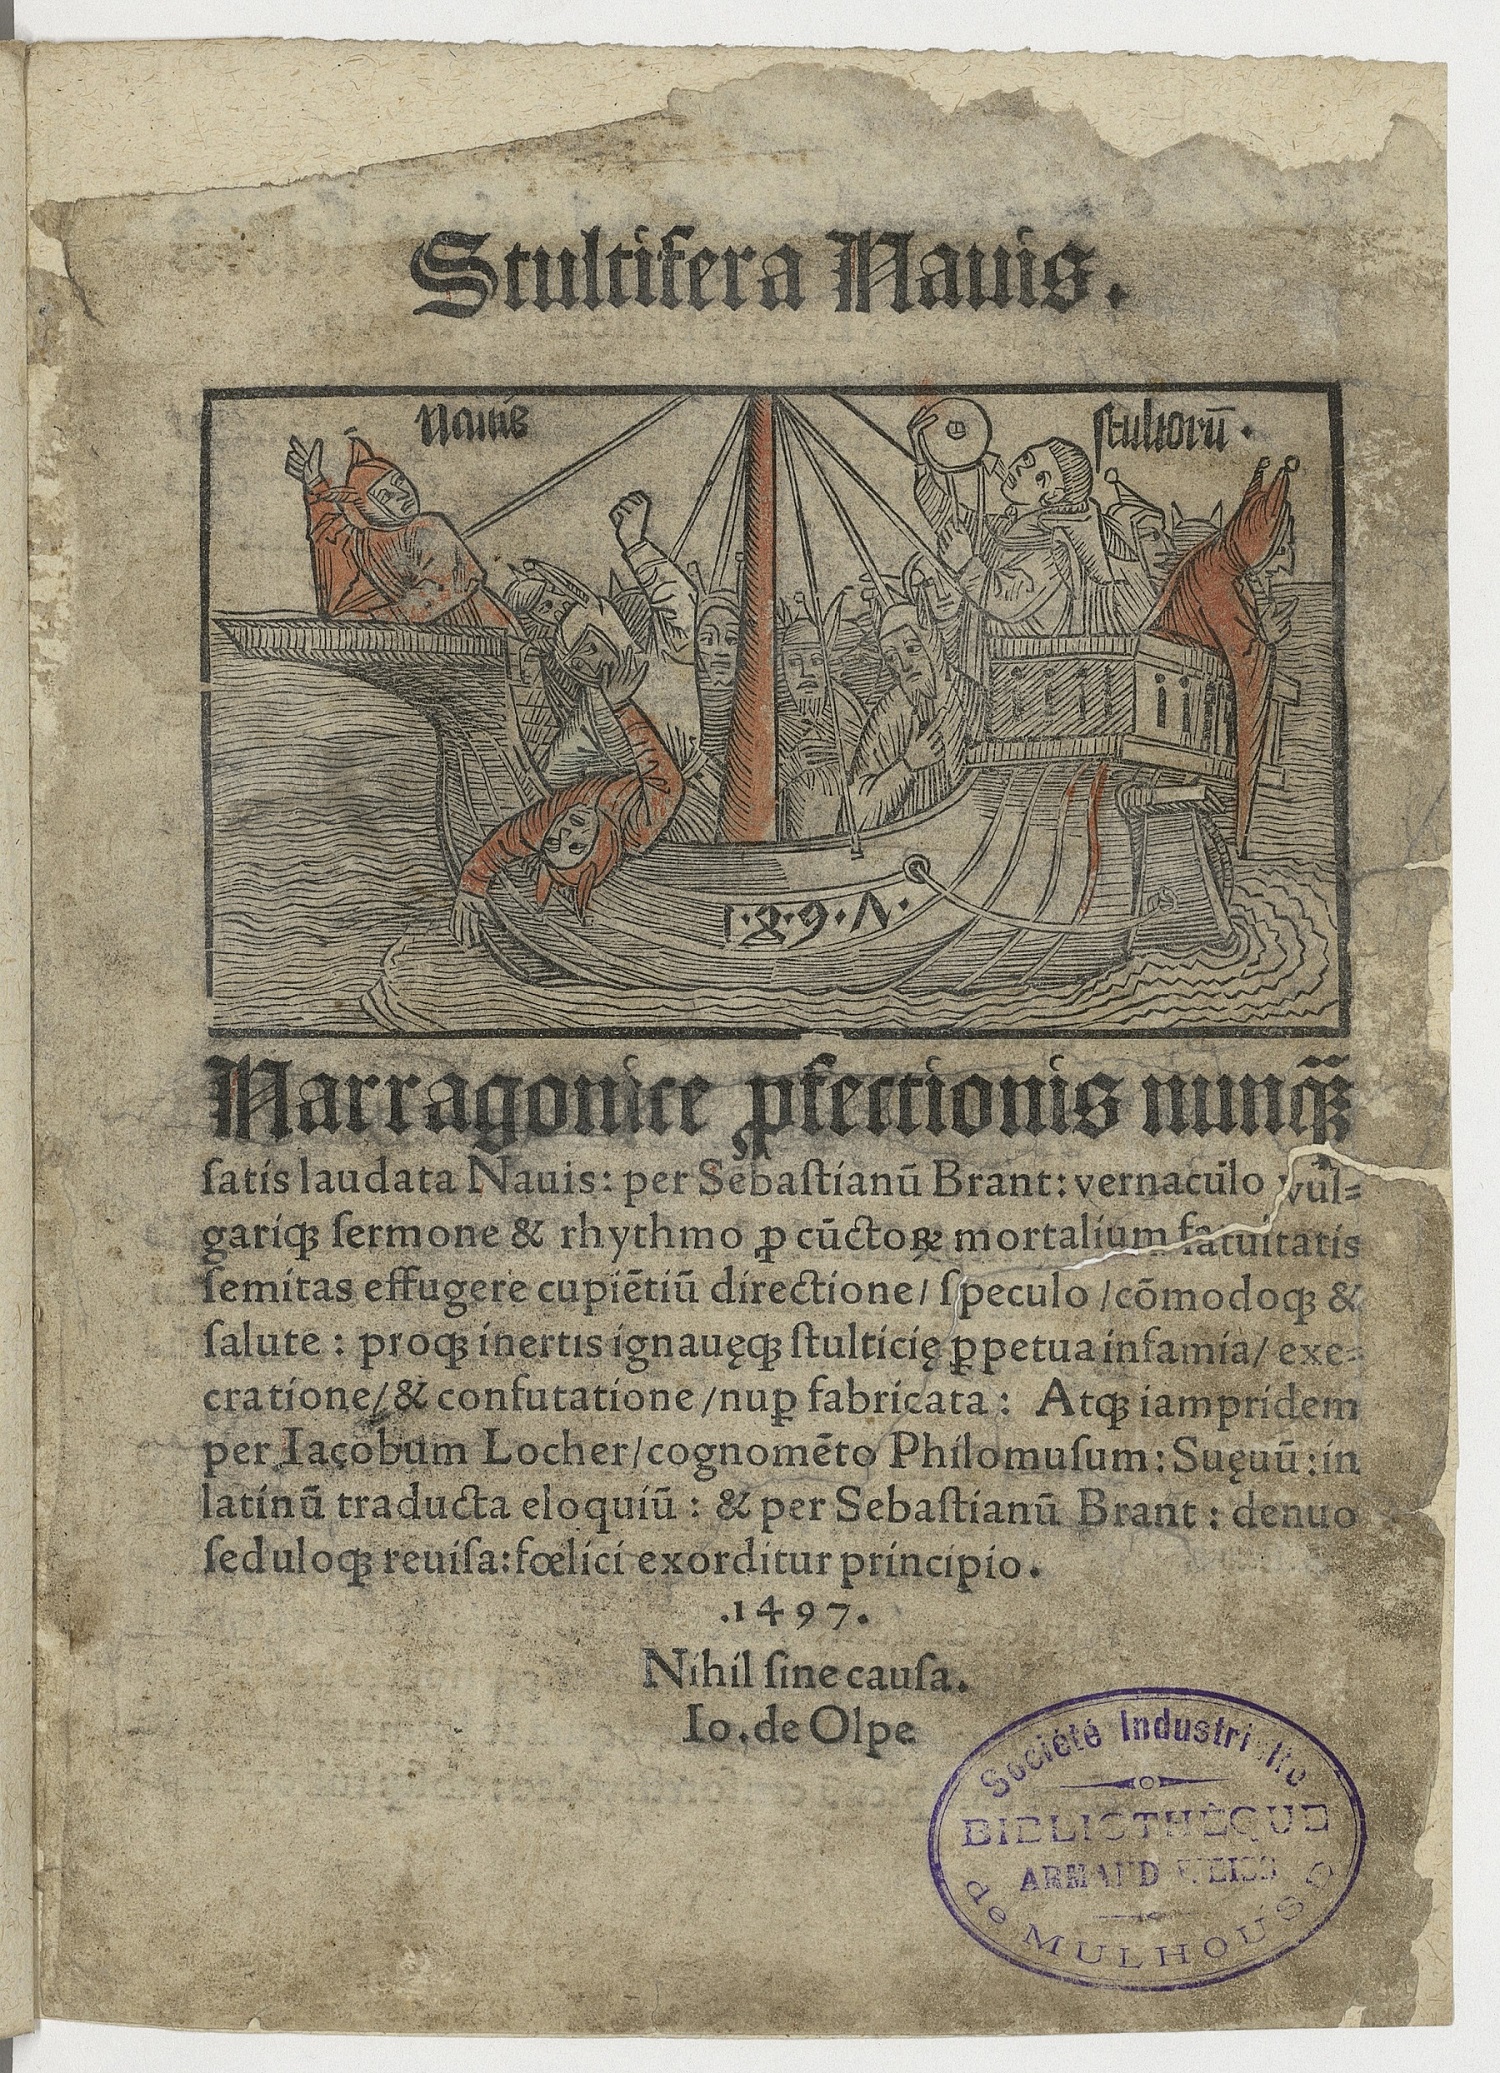 Stultifera Nauis.
Nauis
stultorū.
1.8.9.Λ.
Narragonice ꝓfectionis nunꝗ̃ꝫ
ſatis laudata Nauis: per Sebaſtianū Brant: vernaculo vul=
gariqꝫ ſermone & rhythmo ꝓ cūctoꝝ mortalium fatuitatis
ſemitas effugere cupiētiū directione/ ſpeculo /cōmodoqꝫ &
ſalute: proqꝫ inertis ignauęqꝫ ſtulticię ꝑpetua infamia/ exe=
cratione/ & confutatione /nuꝑ fabricata: Atqꝫ iampridem
per Iacobum Locher/cognomēto Philomuſum: Suęuū: in
latinū traducta eloquiū: & per Sebaſtianū Brant: denuo
ſeduloqꝫ reuiſa: fœlici exorditur principio.
.1497.
Nihil ſine cauſa.
Io. de Olpe
Société Industrielle
BIBLIOTHÈQUE
ARMAND WEISS
de MULHOUSE